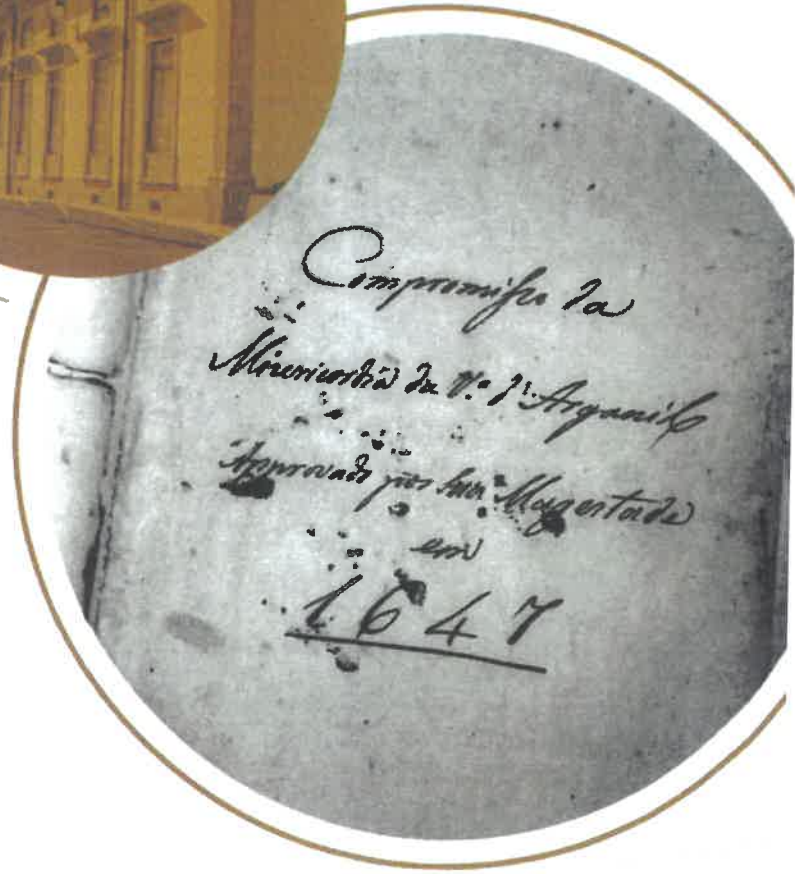 Compromisso da
Misericordia da V.ª d'Arganil
Approvado por Sua Magestade
em
1647